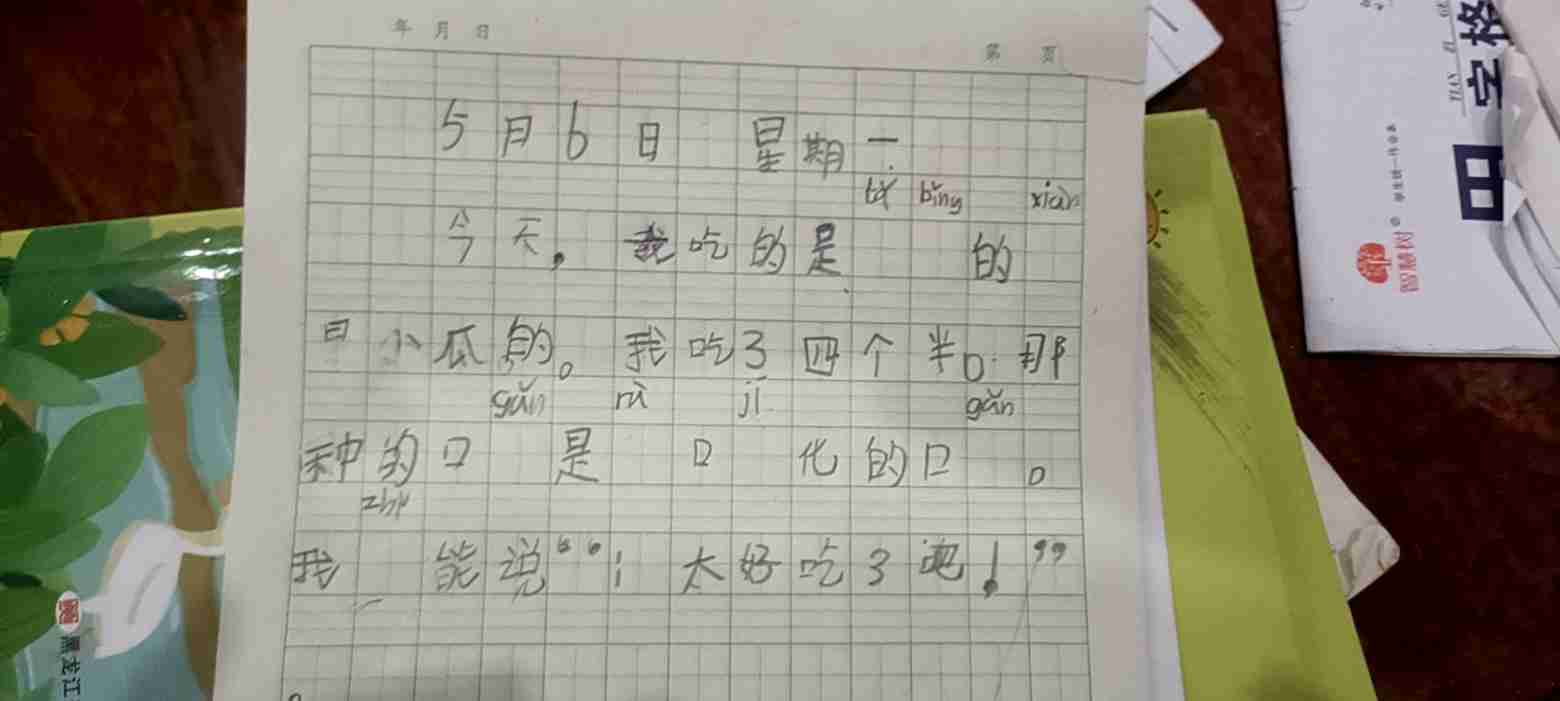 年 月 日
第 页
5月6日 星期一
bǐng xiàn
今天，我吃的是 的
小瓜的。我吃了四个半口。那
gǎn rù jī gǎn
种的口 是 口 化的口 。
zhǐ
我 能说“：太好吃了吧！”
田字格
TIAN ZI
智慧树
黑龙江